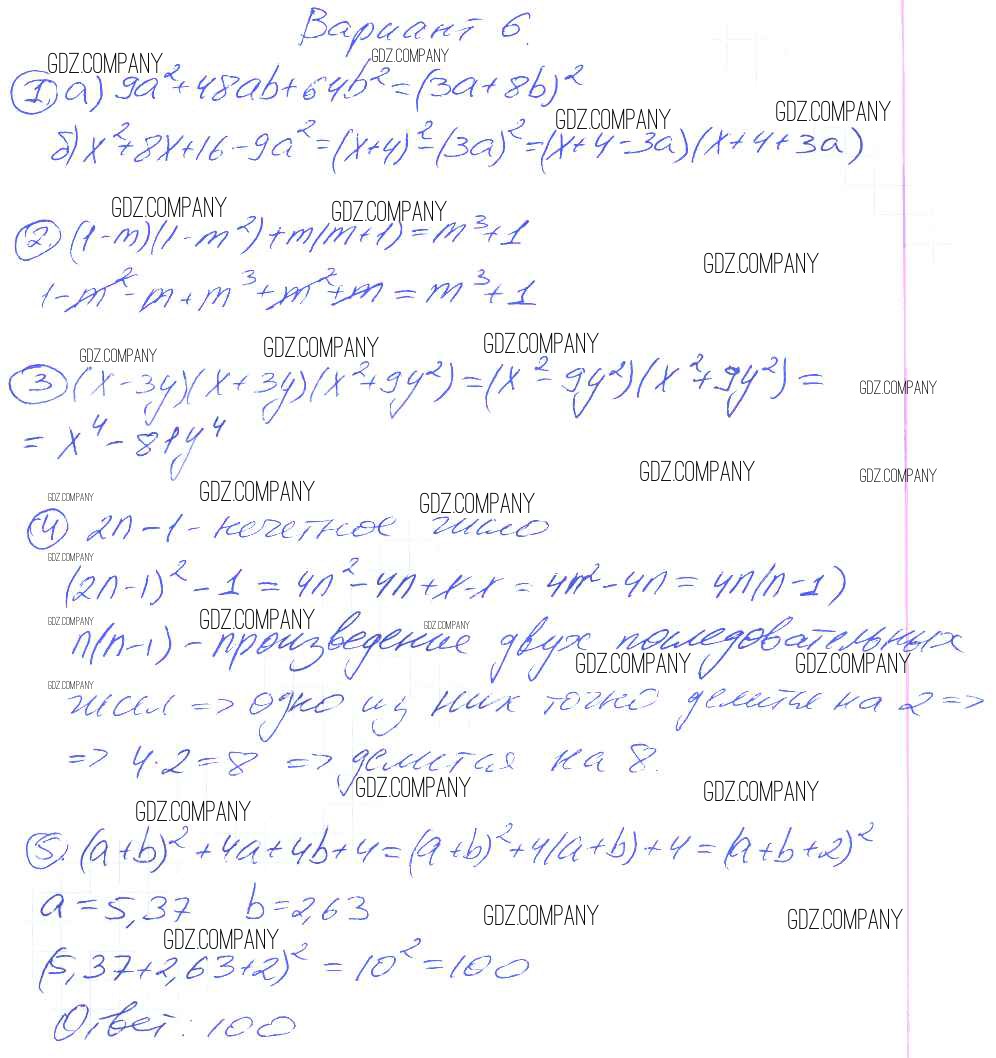 Вариант 6.
GDZ.COMPANY GDZ.COMPANY
1. а) 9a²+48ab+64b²=(3a+8b)²
GDZ.COMPANY GDZ.COMPANY
б) x²+8x+16-9a²=(x+4)²-(3a)²=(x+4-3a)(x+4+3a)
GDZ.COMPANY GDZ.COMPANY
2. (1-m)(1-m²)+m(m+1)=m³+1
GDZ.COMPANY
1-m²-m+m³+m²+m=m³+1
GDZ.COMPANY GDZ.COMPANY GDZ.COMPANY
3 (x-3y)(x+3y)(x²+9y²)=(x²-9y²)(x²+9y²)=
GDZ.COMPANY
=x⁴-81y⁴
GDZ.COMPANY GDZ.COMPANY
GDZ.COMPANY GDZ.COMPANY GDZ.COMPANY
4 2n-1-нечетное число
GDZ.COMPANY
(2n-1)²-1=4n²-4n+1-1=4n²-4n=4n(n-1)
GDZ.COMPANY GDZ.COMPANY GDZ.COMPANY
n(n-1)-произведение двух последовательных
GDZ.COMPANY GDZ.COMPANY
GDZ.COMPANY
чисел => одно из них точно делится на 2 =>
=> 4·2=8 => делится на 8.
GDZ.COMPANY GDZ.COMPANY
GDZ.COMPANY
5. (a+b)²+4a+4b+4=(a+b)²+4(a+b)+4=(a+b+2)²
a=5,37 b=2,63
GDZ.COMPANY GDZ.COMPANY
GDZ.COMPANY
(5,37+2,63+2)²=10²=100
Ответ: 100